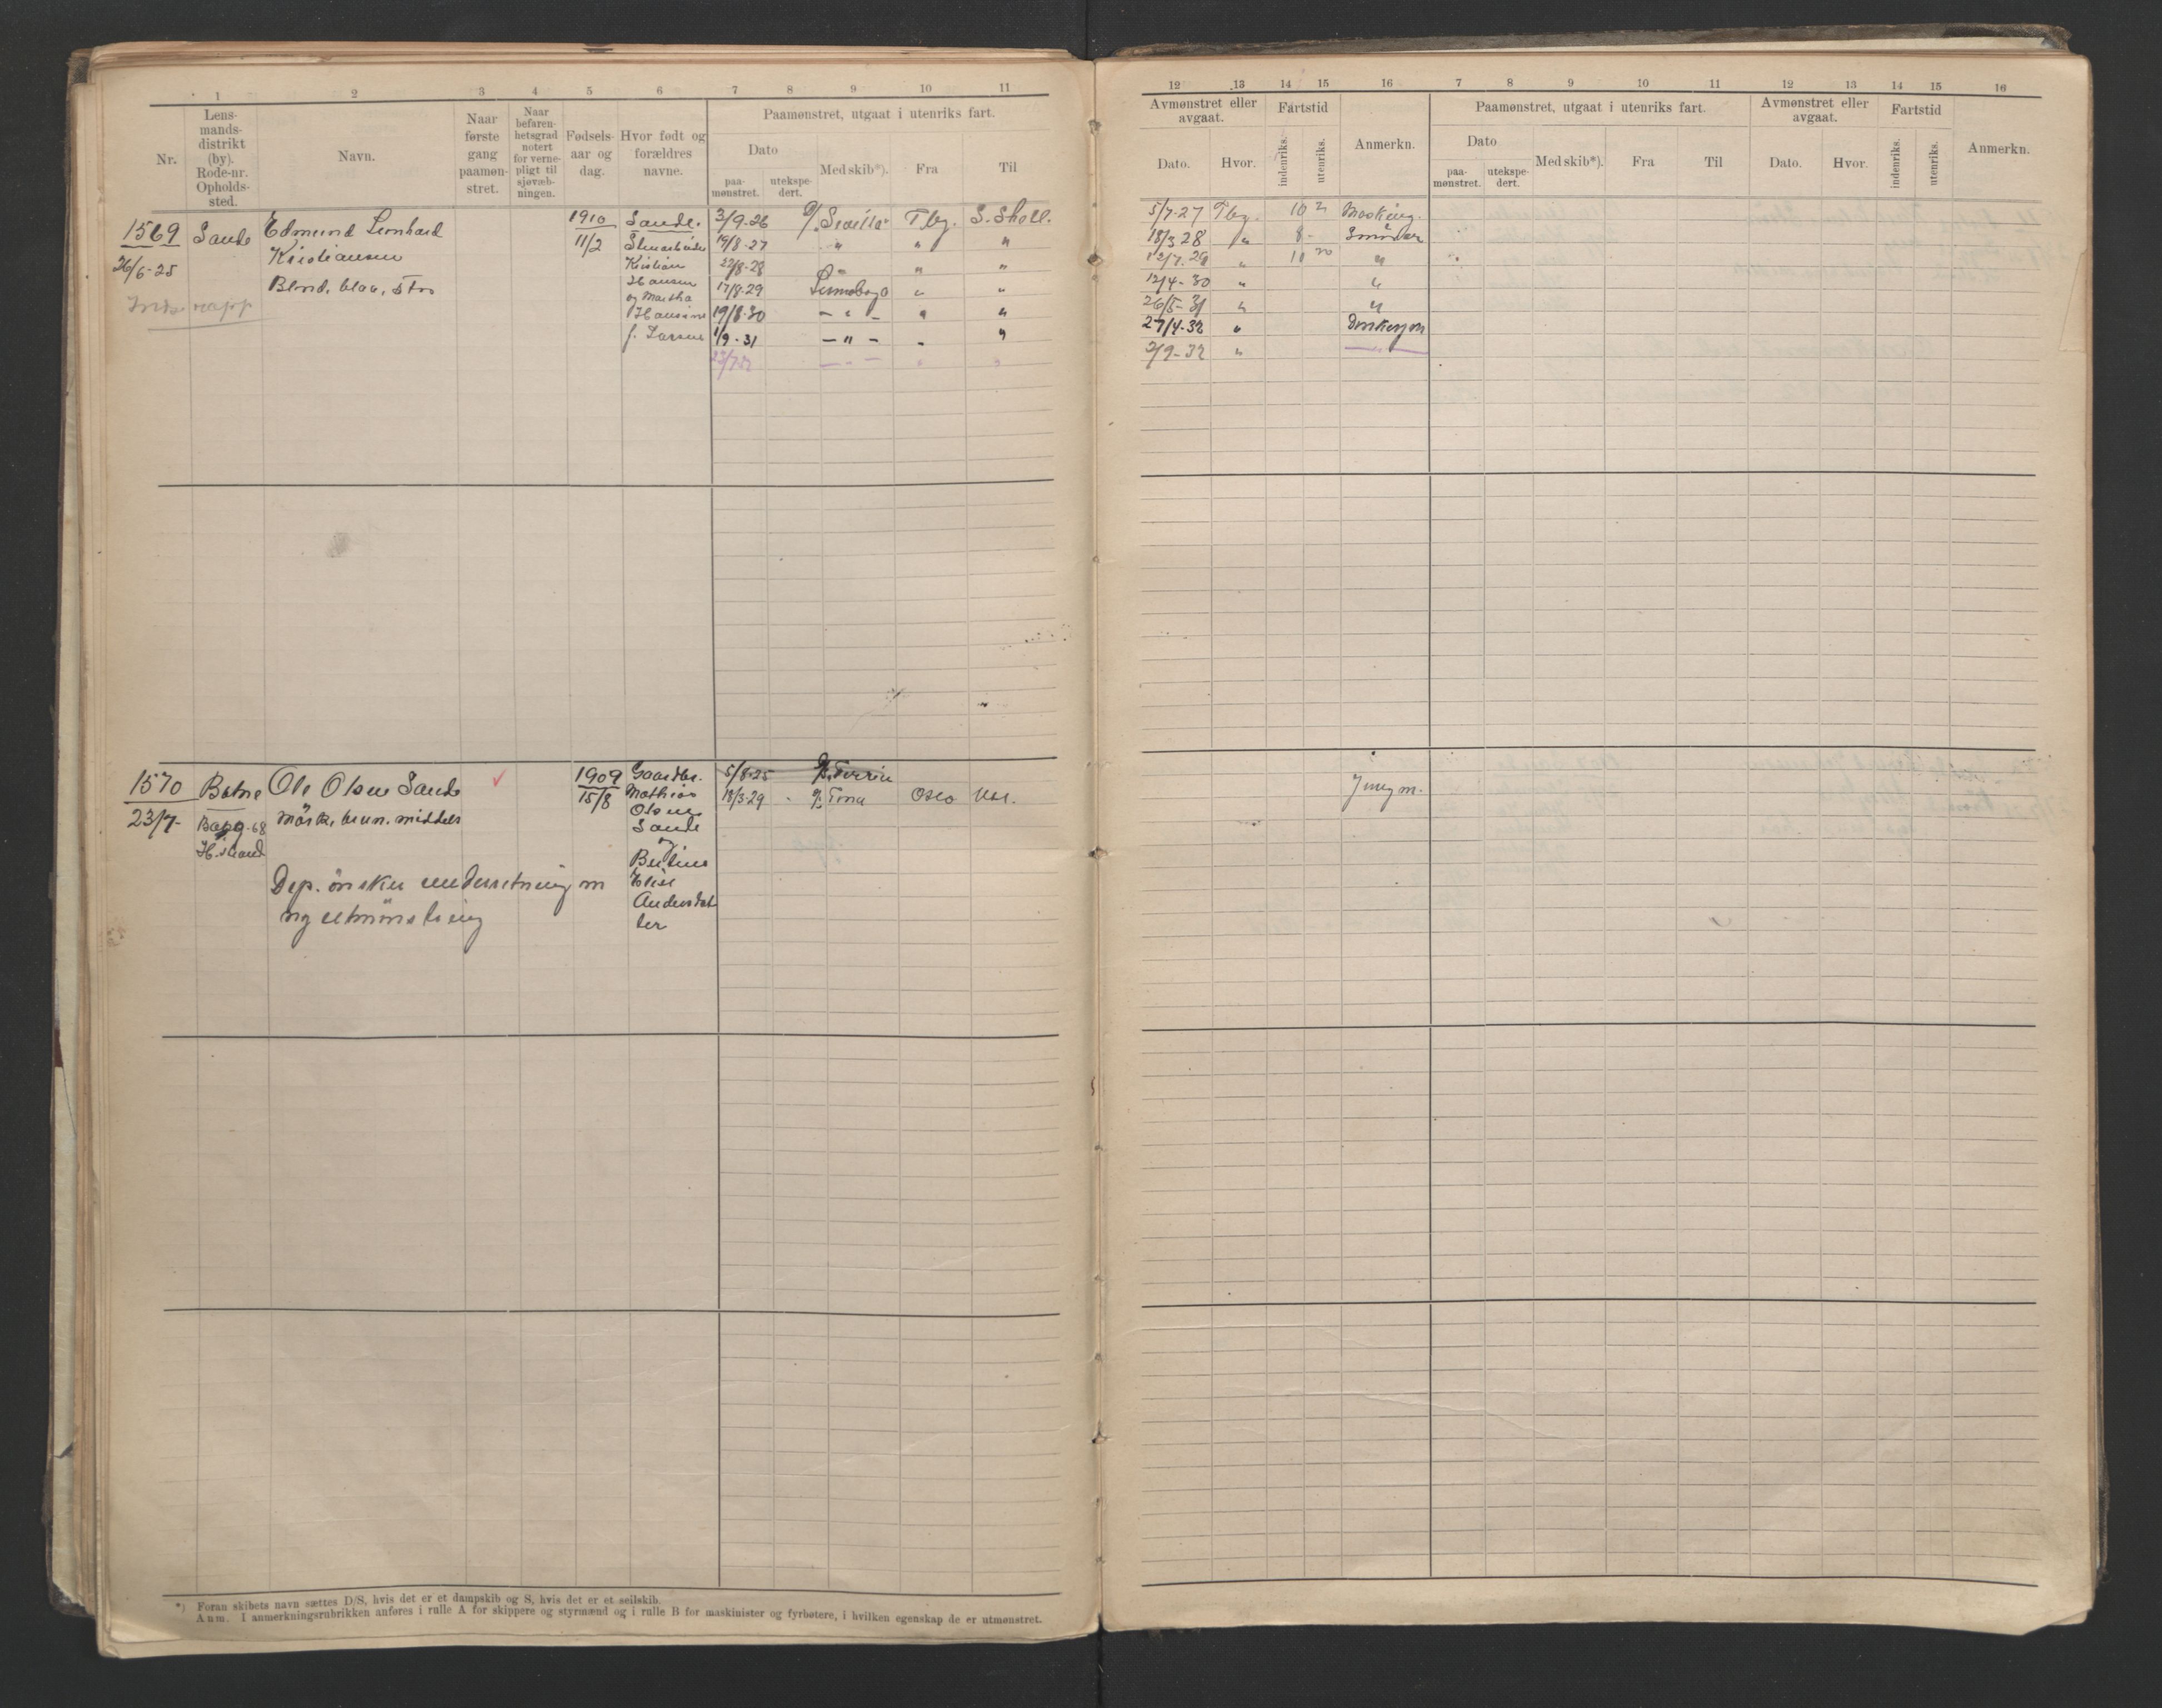 1 2 3 4 5 6 7 8 9 10 11
Nr.
Lens-
mands-
distrikt
(by).
Rode-nr.
Opholds-
sted.
Navn.
Naar
første
gang
paamøn-
stret.
Naar
befaren-
hetsgrad
notert
for verne-
pligt til
sjøvæb-
ningen.
Fødsels-
aar og
dag.
Hvor født og
forældres
navne.
Paamønstret, utgaat i utenriks fart.
Dato
paa-
mønstret.
utekspe-
dert.
Med skib*).
Fra
Til
1569 Sande Edmund Leonhard 1910 Sande. 3/9.26 Tbg. S. Shetl.
26/6-25 Kristiansen 11/2 19/8-27 " " "
Blond, blaa, stor Kristian 22/8-28 " " "
Hansen 17/8.29 " "
og Martha
Hansine 19/8-30 - " - " "
f. Larsen 1/9-31 - " - " "
- " - " "
1570 Botne Ole Olsen Sande 1909 Gaardbr. 5/8.25
23/7- mörk, brun. middels 15/8 Mathias 18/3.29 Oslo
H.strand Olsen
Sande
og
Dep. önsker underretning om Elise
ny utmönstring Andersdat
ter
*) Foran skibets navn sættes D/S, hvis det er et dampskib og S, hvis det er et seilskib.
Anm. I anmerkningsrubrikken anføres i rulle A for skippere og styrmænd og i rulle B for maskinister og fyrbøtere, i hvilken egenskap de er utmønstret.
12 13 14 15 16 7 8 9 10 11 12 13 14 15 16
Avmønstret eller
avgaat.
Dato.
Hvor.
Fartstid
indenriks.
utenriks.
Anmerkn.
Paamønstret, utgaat i utenriks fart.
Dato
paa-
mønstret.
utekspe-
dert.
Med skib*).
Fra
Til
Avmønstret eller
avgaat.
Dato.
Hvor.
Fartstid
indenriks.
utenriks.
Anmerkn.
5/7-27 Tbg. 10
18/3 28 " 8 -
12/7.29 " 11 "
12/4-30 " "
26/5-31 " "
27/4-32 "
2/9-32 "
Jungm.